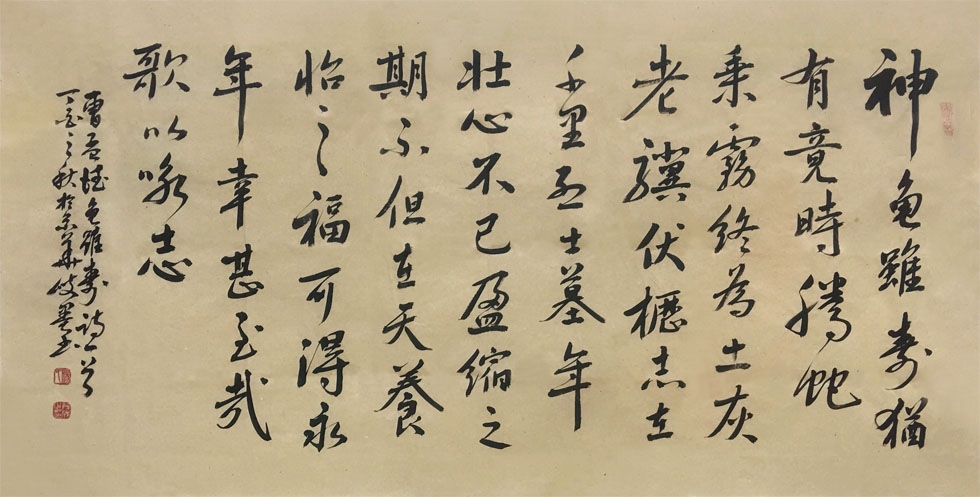 神龟雖壽猶
有竟時騰蛇
乘霧終為土灰
老驥伏櫪志在
千里烈士暮年
壯心不已盈縮之
期不但在天養
怡之福可得永
年幸甚至哉
歌以咏志
曹孟德龟雖壽詩一首
之秋於京華